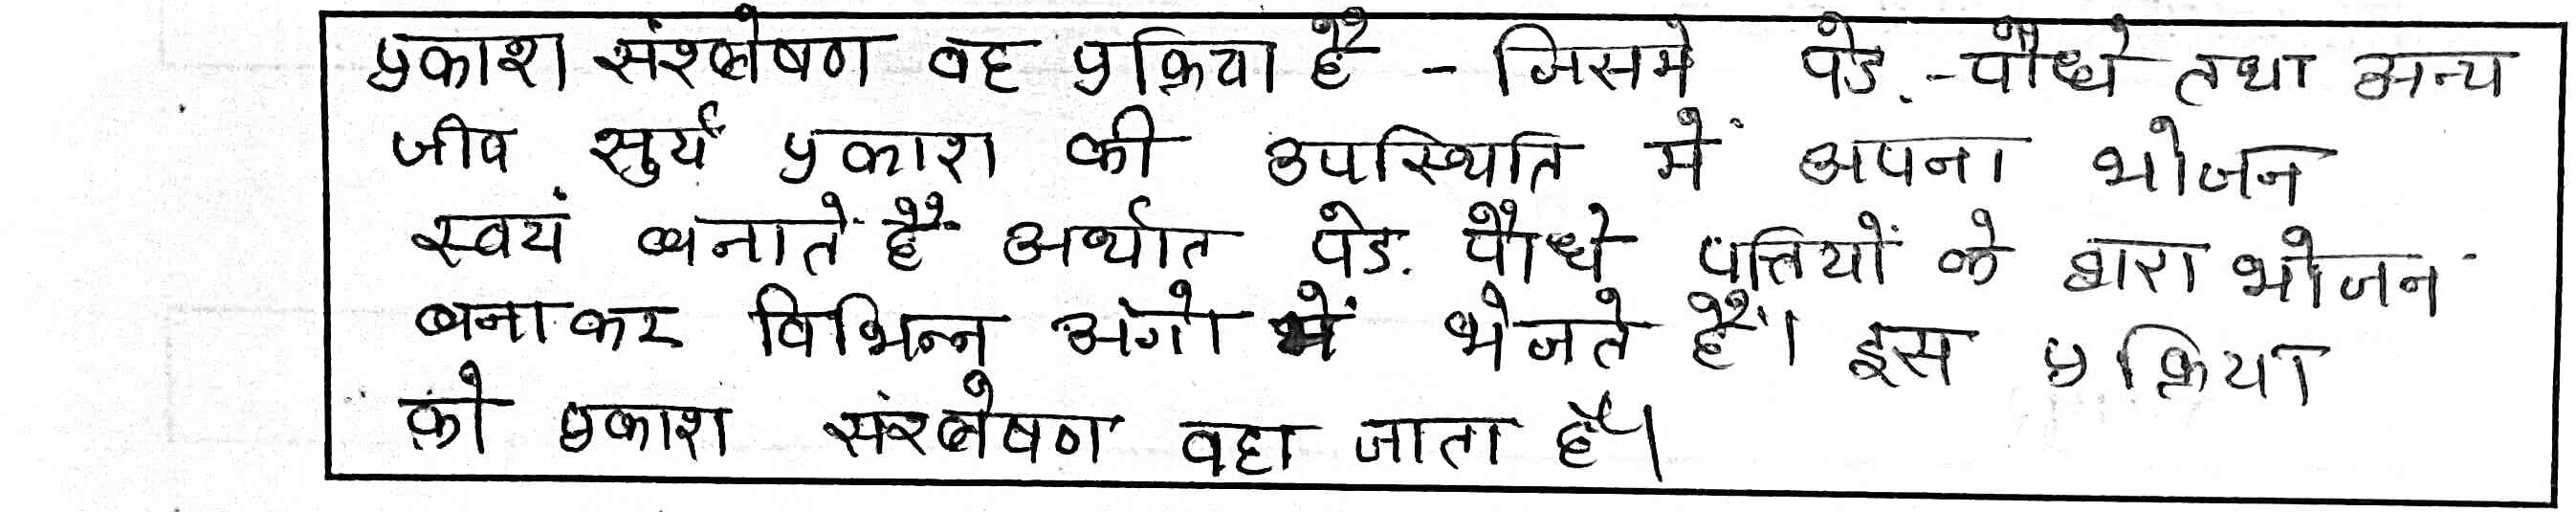 प्रकाश संश्लेषण वह प्रक्रिया है - जिसमे पेड.-पौधे तथा अन्य
जीव सुर्य प्रकाश की उपस्थिति में अपना भोजन
स्वयं बनाते हैं अर्थात पेड. पौधे पत्तियों के द्वारा भोजन
बनाकर विभिन्न अंगो में भेजते हैं। इस प्रक्रिया
को प्रकाश संश्लेषण वहा जाता है।